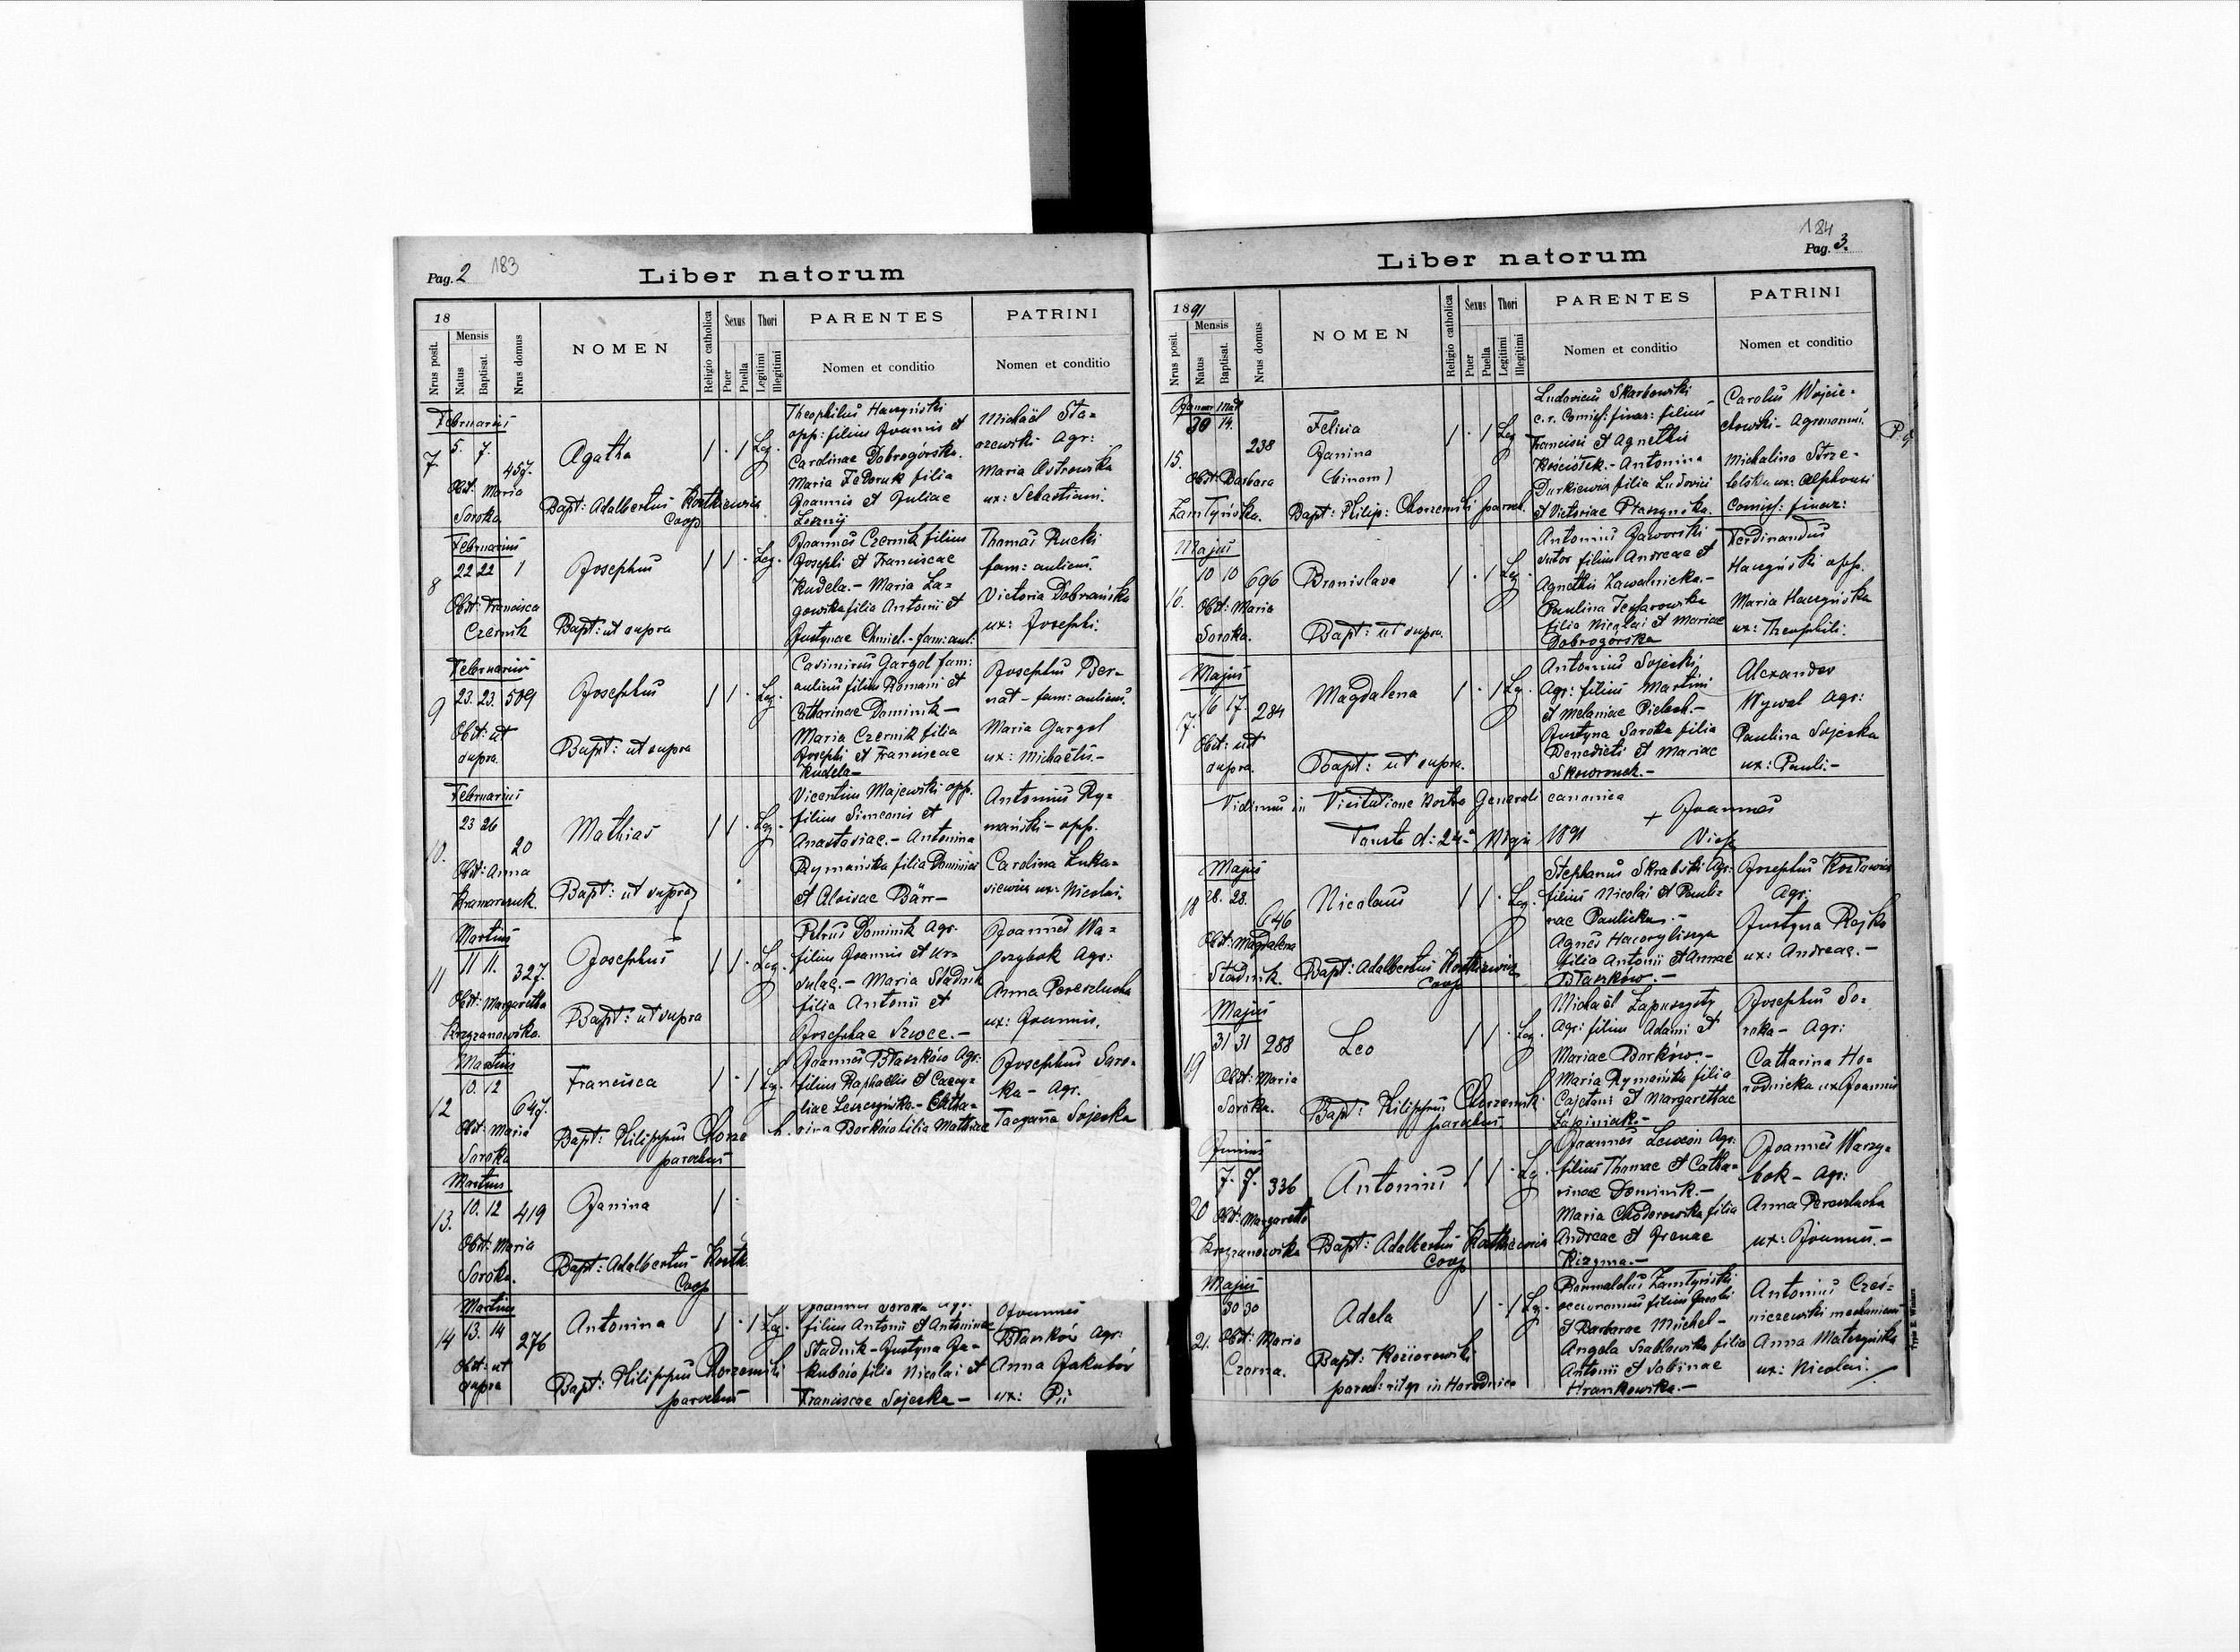 Pag. 2 183
Liber natorum
18
Nrus posit.
Mensis
Natus
Baptisat.
Nrus domus
NOMEN
Religio catholica
Sexus
Puer
Puella
Thori
Legitimi
Illegitimi
PARENTES
Nomen et conditio
PATRINI
Nomen et conditio
Februarius
7
5. 7.
457.
Obst: Maria
Soroka.
Agatha
Bapt: Adalbertus
Coop
1 . 1 Leg.
Theophilus Haczyński
opp: filius Joannis et
Carolinae Dobrogórska.
Maria Fedoruk filia
Joannis et Juliae
Michaël Sta=
Agr:
Maria Ostrowska
ux: Sebastiani.
Februarius
8
22 22 1
Obst: Francisca
Czernik
Josephus
Bapt: ut supra
1 1 . Leg.
Joannes Czernik filius
Josephi et Franciscae
Kudela. – Maria La=
gowska filia Antonii et
Justynae Chmiel. – fam: aul:
Thomas Rucki
fam: aulicus.
Victoria Dobrańska
ux: Josephi.
Februarius
9
23. 23. 509
Obst: ut
supra.
Josephus
Bapt: ut supra
1 1 . Leg.
Casimirus Gargol fam:
aulicus filius Romani et
Catharinae Dominik –
Maria Czernik filia
Josephi et Franciscae
Kudela –
Josephus Ber=
nat – fam: aulicus.
Maria Gargol
ux: Michaëlis. –
Februarius
10.
23 26
20
Obst: Anna
Kramarczuk.
Mathias
Bapt: ut supra
1 1 . Leg.
Vicentius Majewski opp.
filius Simeonis et
Anastasiae. – Antonina
Rymańska filia Dominici
et Aloisae Bärr –
Antonius Ry=
mański – opp.
Carolina Luka=
siewicz ux: Nicolai.
Martius
11
11 11. 327.
Obst: Margaretha
Krzyzanowska.
Josephus
Bapt: ut supra
1 1 . Leg.
Petrus Dominik Agr.
filius Joannis et Ur=
sulae. – Maria Stadnik
filia Antonii et
Josephae Szwoce. –
Joannes Wa=
rzybok Agr:
Anna Pereszlucha
ux: Joannis.
Martius
12
10. 12
647.
Obst: Maria
Soroka
Francisca
Bapt: Philippus
parochus
1 . 1 Leg.
Joannes Błaszków Agr:
filius Raphaëlis et Caecy=
liae Leszczyńska. – Catha=
rina Borków filia Mathiae
Josephus Soro=
ka – Agr.
Tacyana Sojeska
Martius
13.
10. 12 419
Obst: Maria
Soroka.
Janina
Bapt: Adalbertus
Coop
1 .
Martius
14
13. 14 276
Obst: ut
supra
Antonina
Bapt: Philippus Chorzemski
parochus
1 . 1 Leg.
Joannes Soroka Agr.
filius Antonii et Antoninae
Stadnik – Justyna Ja=
kubów filia Nicolai et
Franciscae Sojeska –
Joannes
Błaszków Agr:
Anna Jakubów
ux: Pii
184
Pag. 3.
Liber natorum
1891
Nrus posit.
Mensis
Natus
Baptisat.
Nrus domus
NOMEN
Religio catholica
Sexus
Puer
Puella
Thori
Legitimi
Illegitimi
PARENTES
Nomen et conditio
PATRINI
Nomen et conditio
15.
30 14.
238
Obst: Barbara
Zamłyńska.
Felicia
Janina
(binom)
Bapt: Philip: Chorzemski paroch.
1 . 1 Leg
Ludovicus Skarbowski
c. r. Comiss: finar: filius
Francisci et Agnethis
Kościółek. – Antonina
Durkiewicz filia Ludovici
et Victoriae Ptaszyńska.
Carolus Wojcie=
chowski – Agronomus.
Michalina Strze=
lelska ux: Alphonsi
Comiss: finar:
Majus
16.
10 10 696
Obst: Maria
Soroka.
Bronislava
Bapt: ut supra.
1 . 1 Leg.
Antonius Jaworski
sutor filius Andreae et
Agnethis Zawalnicka. –
Paulina Tessarowska
filia Nicolai et Mariae
Dobrogórska
Ferdinandus
Haczyński opp.
Maria Haczyńska
ux: Theophili.
Majus
17.
16 17. 284
Obst: ut
supra.
Magdalena
Bapt: ut supra.
1 . 1 Leg.
Antonius Sojeski
Agr: filius Martini
et Melaniae Pielech. –
Justyna Soroka filia
Benedicti et Mariae
Skowronek. –
Alexander
Wywal Agr:
Paulina Sojeska
ux: Pauli. –
Vidimus in Visitatione Nostra Generali canonica
Touste d: 24a Maji 1891
+ Joannes
Majus
18
28. 28.
646
Obst: Magdalena
Stadnik.
Nicolaus
Bapt: Adalbertus
Coop
1 1 . Leg.
Stephanus Skrabski Agr:
filius Nicolai et Pauli=
nae Paulicka. –
Agnes Haceryliszyn
filia Antonii et Annae
Błaszków. –
Josephus Kozławicz
Agr:
Justyna Rojko
ux: Andreae. –
Majus
19
31 31 288
Obst: Maria
Soroka.
Leo
Bapt: Philippus Chorzemski
parochus
1 1 . Leg.
Michaël Łapuszysty
Agr: filius Adami et
Mariae Borków. –
Maria Rymańska filia
Cajetani et Margarethae
Łapiniak. –
Josephus So=
roka – Agr:
Catharina Ho=
rodnicka ux Joannis
Junius
20
7. 7. 336
Obst: Margaretha
Krzyzanowska
Antonius
Bapt: Adalbertus
Coop
1 1 . Leg.
Joannes Lewcón Agr:
filius Thomae et Catha=
rinae Dominik. –
Maria Chodorowska filia
Andreae et Irenae
Kizyma. –
Joannes Warzy=
bok – Agr:
Anna Pereszlucha
ux: Joannis. –
Majus
21.
30 30
Obst: Maria
Czorna.
Adela
Bapt: Koziorowski
paroch: rit gr in Horodnica
1 . 1 Leg.
Romualdus Zamłyński
oeconomus filius Jacobi
et Barbarae Michel –
Angela Szablowska filia
Antonii et Sabinae
Hrankowska. –
Antonius Cześ=
niczewski mechanicus
Anna Matczyńska
ux: Nicolai.